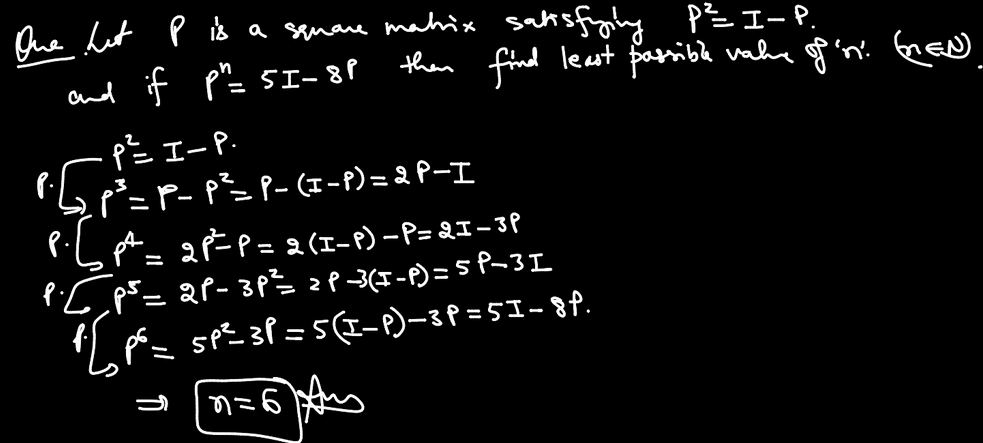 Que. Let P is a square matrix satisfying P² = I - P.
and if Pⁿ = 5I - 8P then find least possible value of 'n'. (n∈N).
P² = I - P.
P. P³ = P - P² = P - (I-P) = 2P - I
P. P⁴ = 2P² - P = 2(I-P) - P = 2I - 3P
P. P⁵ = 2P - 3P² = 2P - 3(I-P) = 5P - 3I
P. P⁶ = 5P² - 3P = 5(I-P) - 3P = 5I - 8P.
⇒ n=6 Ans